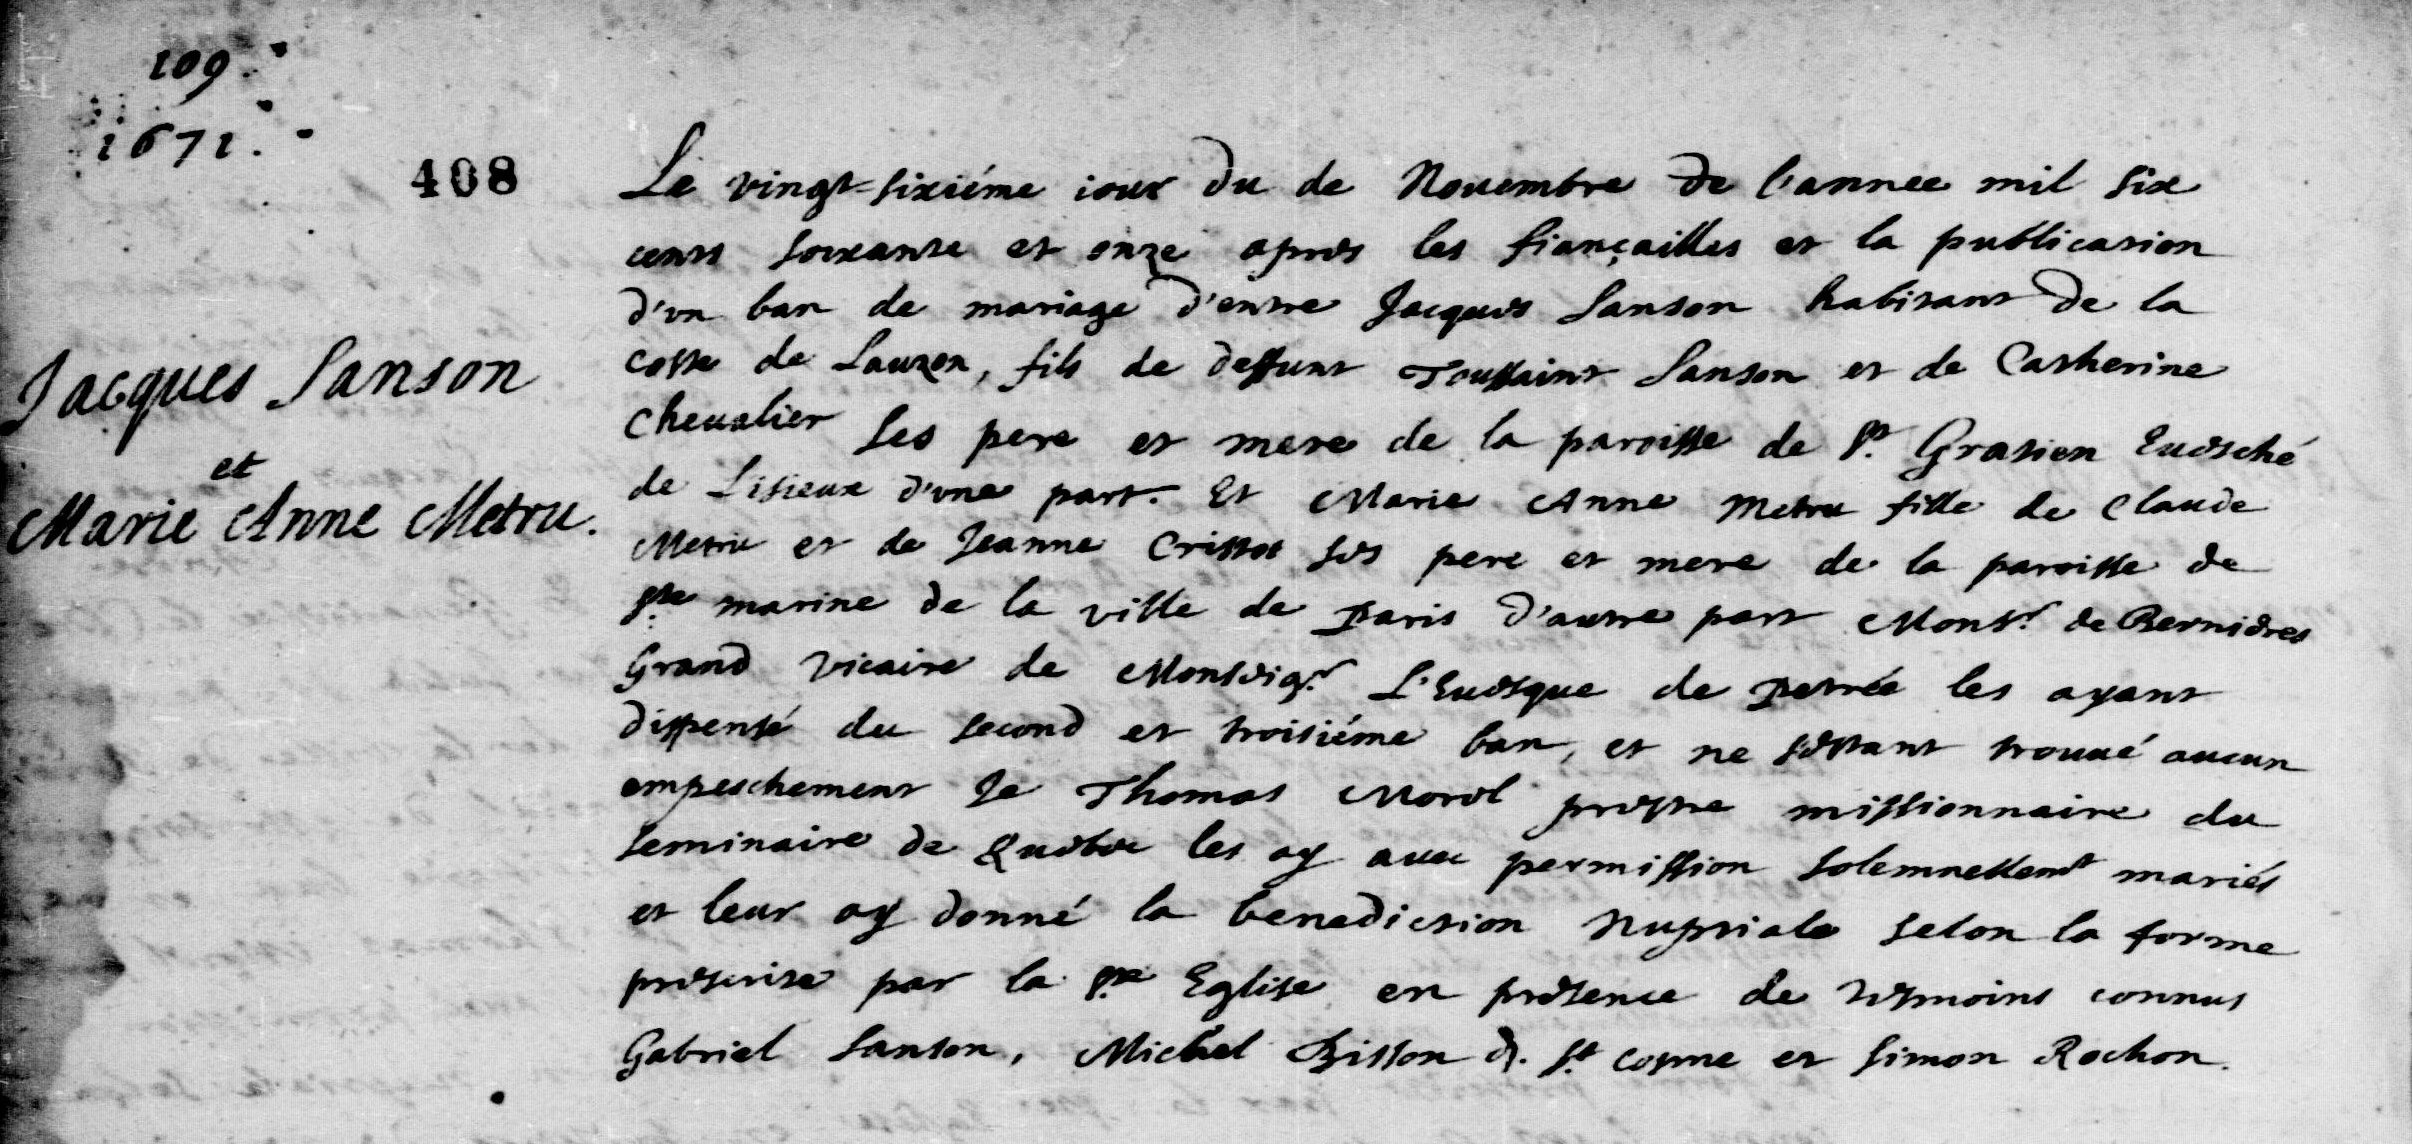 109.
1671.
408
Jacques Sanson
et
Marie Anne Metru.
Le vingt=sixiéme iour du de Nouembre de l'annee mil six
cents soixante et onze apres les fiançailles et la publication
d'vn ban de mariage d'entre Jacques Sanson habitant de la
coste de Lauzon, fils de deffunt Toussaint Sanson et de Catherine
Cheualier ses pere et mere de la paroisse de St. Gratien Euesché
de Lisieux d'vne part. Et Marie Anne Metru fille de Claude
Metru et de Jeanne Crissot ses pere et mere de la paroisse de
Ste marine de la ville de Paris d'autre part Monsr. de Bernieres
Grand Vicaire de Monseigr. L'Euesque de Petrée les ayant
dispensé du second et troisiéme ban, et ne s'estant trouué aucun
empeschement Je Thomas Morel prestre missionnaire du
seminaire de Quebec les ay auec permission solemnellemt mariés
et leur ay donné la benediction Nuptiale selon la forme
prescrite par la Ste Eglise en presence de tesmoins connus
Gabriel Sanson, Michel Bisson d. St Cosme et Simon Rochon.